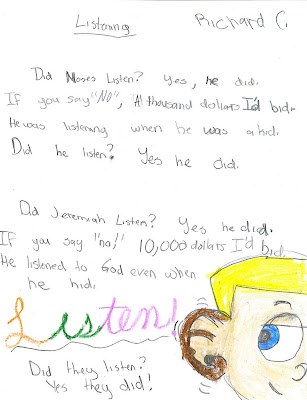 Listening
Richard C.
Did Moses Listen? Yes, he did.
If you say "NO", A thousand dollars I'd bid.
He was listening when he was a kid.
Did he listen? Yes he did.
Did Jeremiah Listen? Yes he did.
If you say "no!" 10,000 dollars I'd bid.
He listened to God even when
he hid.
Listen!
Did they listen?
Yes they did!